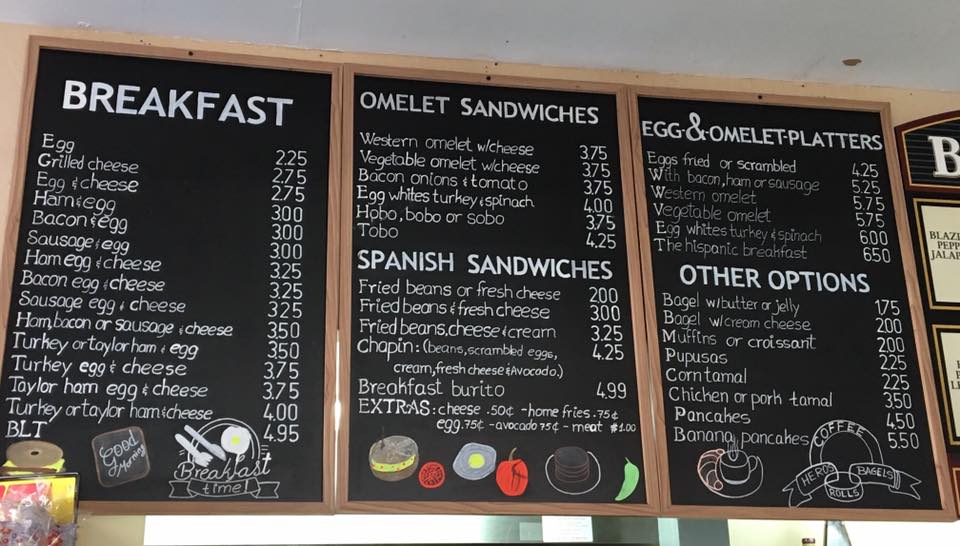 BREAKFAST
Egg 2.25
Grilled cheese 2.75
Egg & cheese 2.75
Ham & egg 3.00
Bacon & egg 3.00
Sausage & egg 3.00
Ham egg & cheese 3.25
Bacon egg & cheese 3.25
Sausage egg & cheese 3.25
Ham, bacon or sausage & cheese 3.50
Turkey or taylor ham & egg 3.50
Turkey egg & cheese 3.75
Taylor ham egg & cheese 3.75
Turkey or taylor ham & cheese 4.00
BLT 4.95
Good
Morning
Breakfast
time!
OMELET SANDWICHES
Western omelet w/cheese 3.75
Vegetable omelet w/cheese 3.75
Bacon onions & tomato 3.75
Egg whites turkey & spinach 4.00
Hobo, bobo or sobo 3.75
Tobo 4.25
SPANISH SANDWICHES
Fried beans or fresh cheese 2.00
Fried beans & fresh cheese 3.00
Fried beans, cheese & cream 3.25
Chapin: (beans, scrambled eggs, 4.25
cream, fresh cheese & Avocado.)
Breakfast burito 4.99
EXTRAS: cheese .50¢ - home fries .75¢
egg .75¢ - avocado 75¢ - meat $1.00
EGG-&-OMELET-PLATTERS
Eggs fried or scrambled 4.25
With bacon, ham or sausage 5.25
Western omelet 5.75
Vegetable omelet 5.75
Egg whites turkey & spinach 6.00
The hispanic breakfast 6.50
OTHER OPTIONS
Bagel w/butter or jelly 1.75
Bagel w/cream cheese 2.00
Muffins or croissant 2.00
Pupusas 2.25
Corn tamal 2.25
Chicken or pork tamal 3.50
Pancakes 4.50
Banana pancakes 5.50
COFFEE
HEROS BAGELS
ROLLS
B
BLAZE
PEPP
JALAP